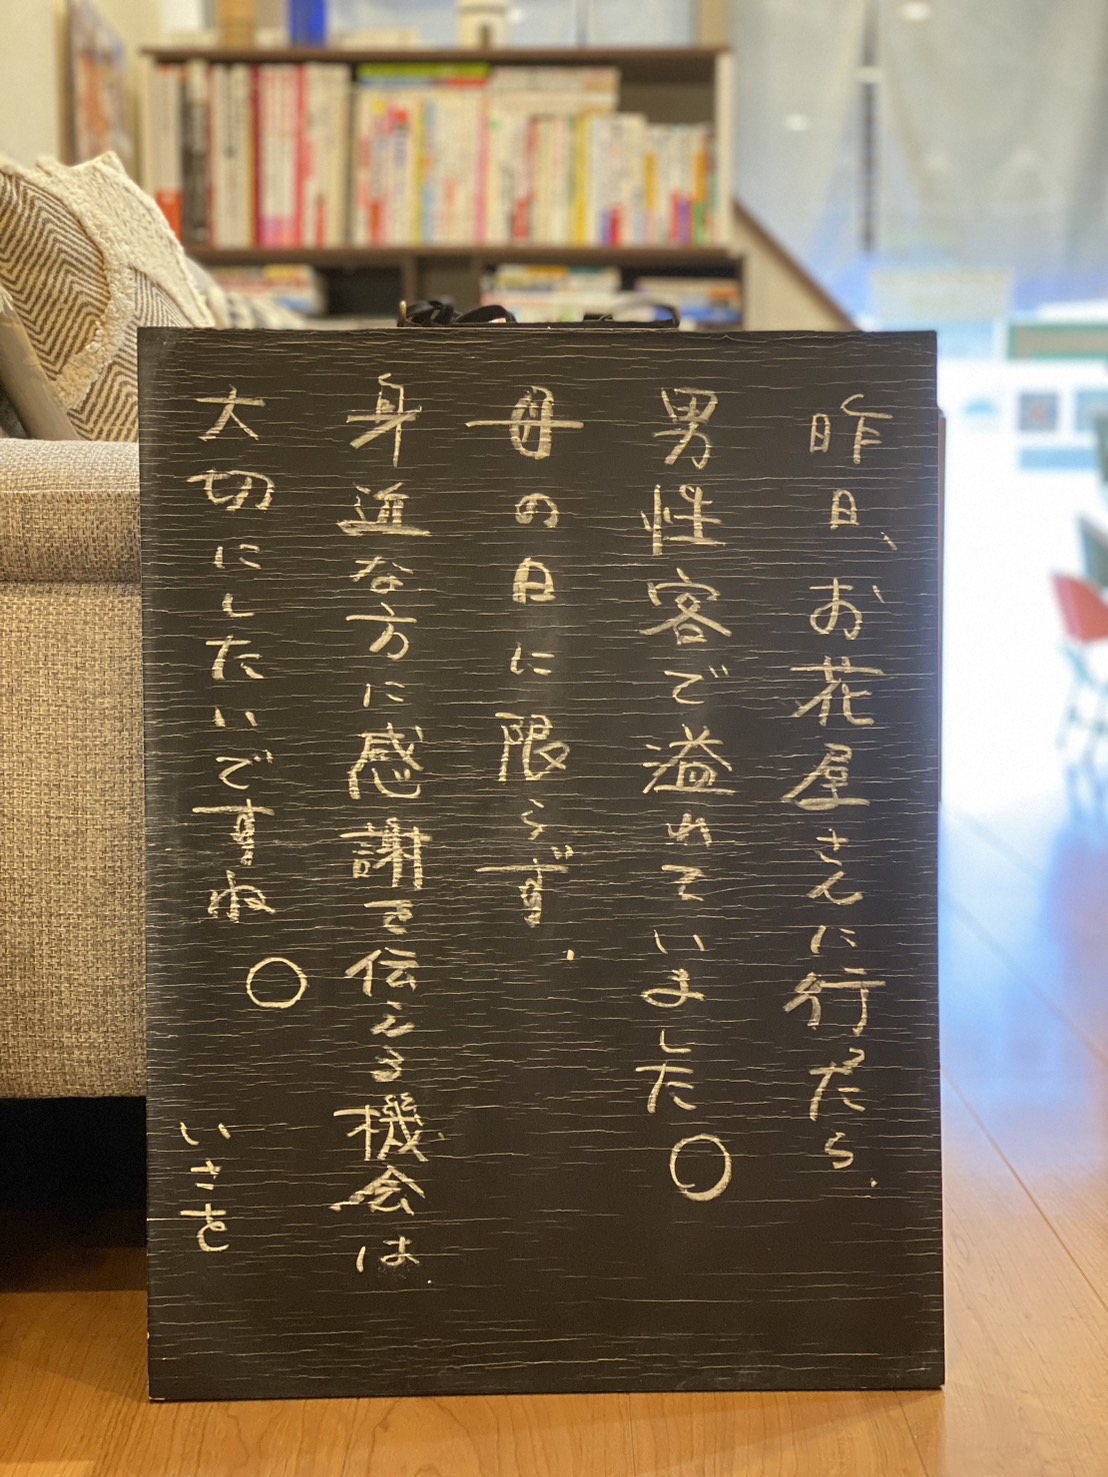 昨日、お花屋さんに行ったら、
男性客で溢れていました。
母の日に限らず、
身近な方に感謝を伝える機会は、
大切にしたいですね。
いさを